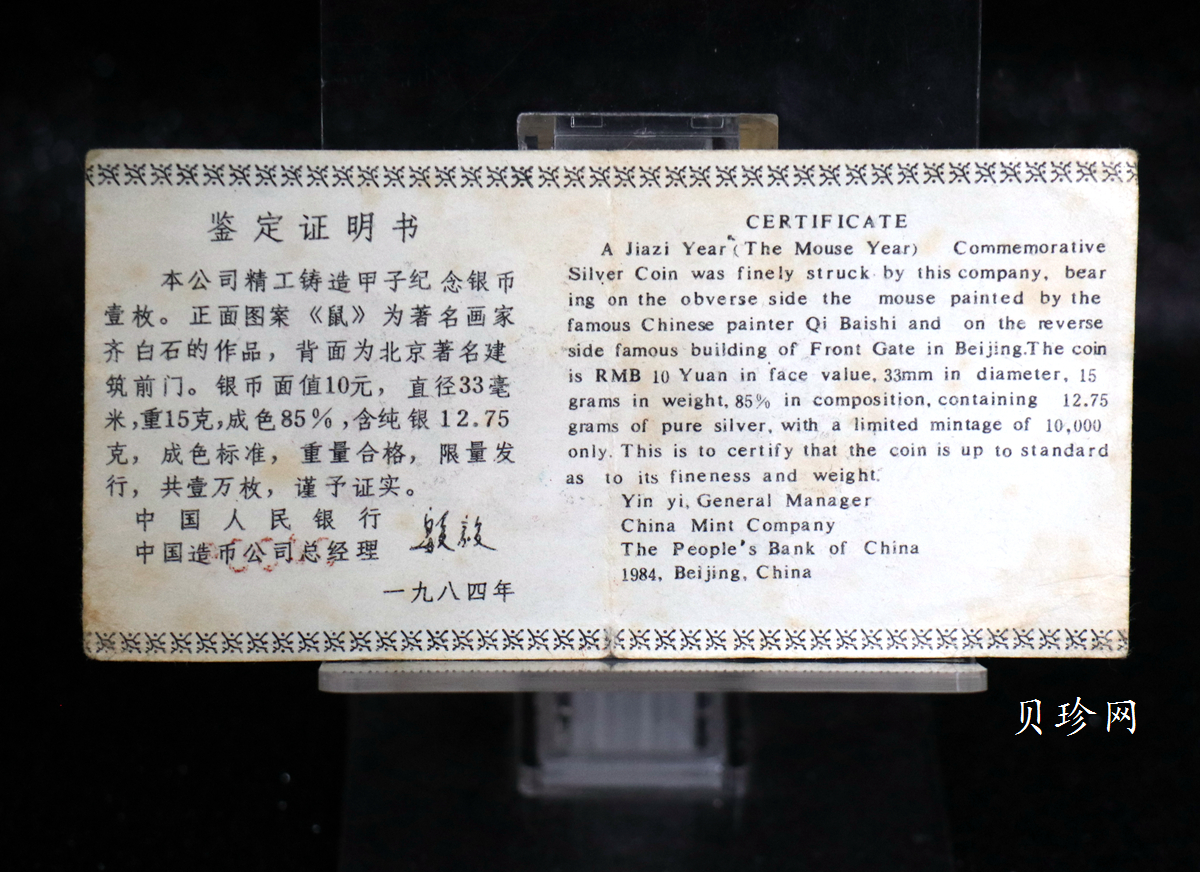 鉴定证明书
本公司精工铸造甲子纪念银币
壹枚。正面图案《鼠》为著名画家
齐白石的作品，背面为北京著名建
筑前门。银币面值10元，直径33毫
米,重15克,成色85%,含纯银12.75
克，成色标准，重量合格，限量发
行，共壹万枚，谨予证实。
中国人民银行
中国造币公司总经理
一九八四年
CERTIFICATE
A Jiazi Year (The Mouse Year) Commemorative
Silver Coin was finely struck by this company, bear
ing on the obverse side the mouse painted by the
famous Chinese painter Qi Baishi and on the reverse
side famous building of Front Gate in Beijing.The coin
is RMB 10 Yuan in face value, 33mm in diameter, 15
grams in weight, 85% in composition, containing 12.75
grams of pure silver, with a limited mintage of 10,000
only. This is to certify that the coin is up to standard
as to its fineness and weight.
Yin yi, General Manager
China Mint Company
The People's Bank of China
1984, Beijing, China
贝珍网